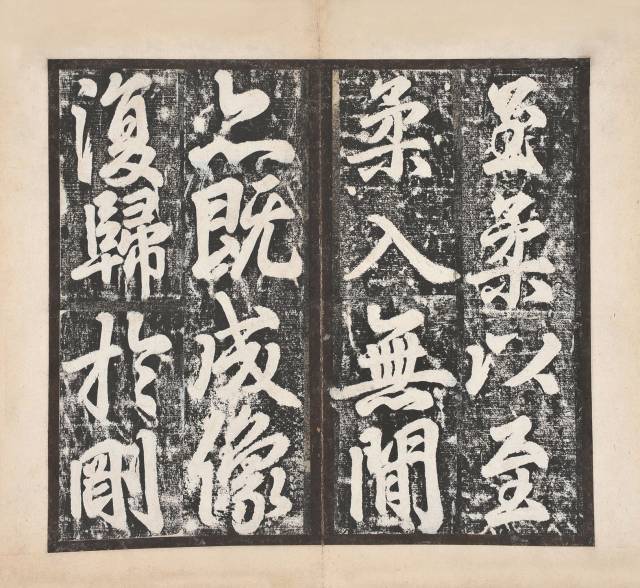 柔以至
柔入無閒
亦既成像
復歸於剛